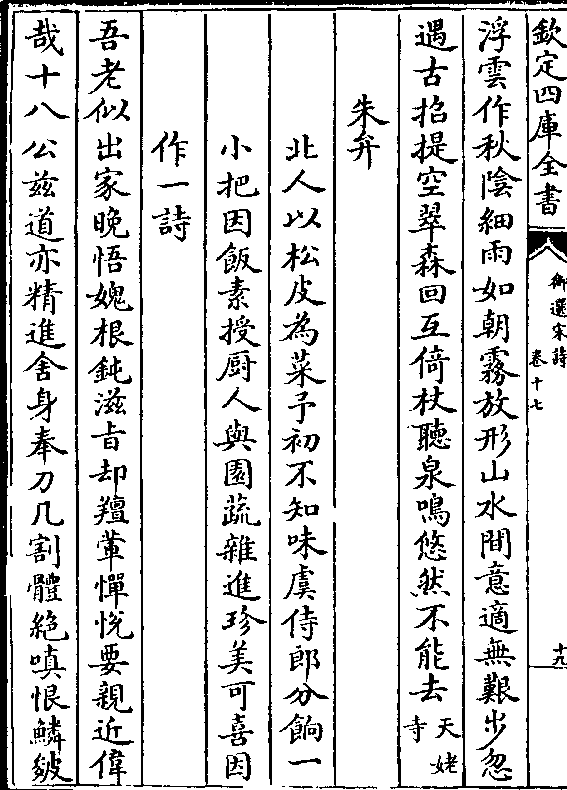 欽定四庫全書
御選宋詩
卷十七
十九
浮雲作秋陰細雨如朝霧放形山水間意適無艱步忽
遇古招提空翠森回互倚杖聽泉鳴悠然不能去天姥寺
朱弁
北人以松皮為菜予初不知味虞侍郎分餉一
小把因飯素授厨人與園蔬雜進珍美可喜因
作一詩
吾老似出家晚悟媿根鈍滋旨却羶葷憚恱要親近偉
哉十八公兹道亦精進舍身奉刀几割體絶嗔恨鱗皴